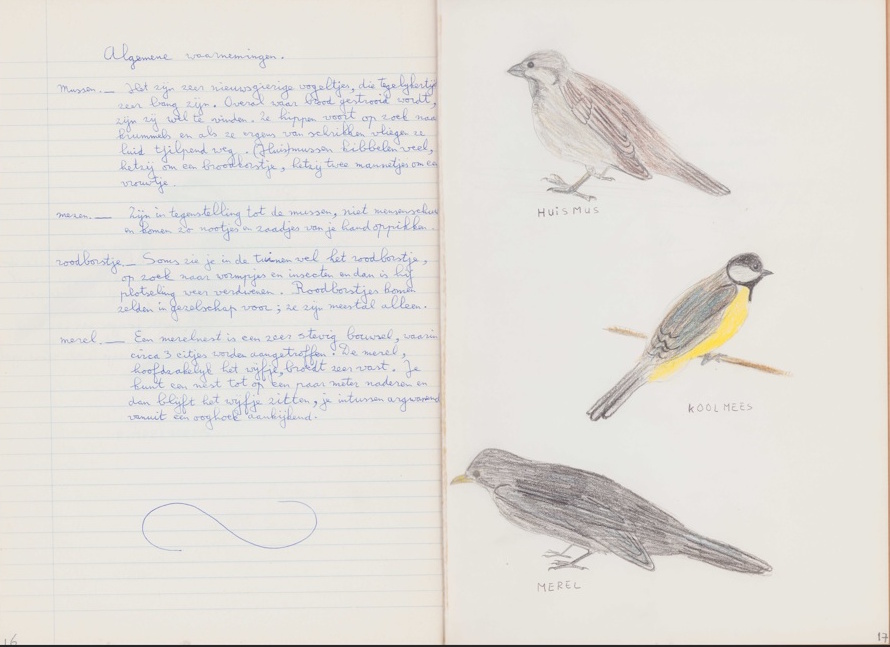 Algemene waarnemingen.
mussen. — Het zijn zeer nieuwsgierige vogeltjes, die tegelijkertijd
zeer bang zijn. Overal waar brood gestrooid wordt,
zijn zij wel te vinden. Ze hippen voort op zoek naar
kruimmels en als ze ergens van schrikken vliegen ze
luid tjilpend weg. (Huis)mussen kibbelen veel,
hetzij om een broodkorstje, hetzij twee mannetjes om een
vrouwtje.
mezen. — Zijn in tegenstelling tot de mussen, niet mensenschuw
en komen zo nootjes en zaadjes van je hand oppikken.
roodborstje. — Soms zie je in de tuinen wel het roodborstje,
op zoek naar wormpjes en insecten en dan is hij
plotseling weer verdwenen. Roodborstjes komen
zelden in gezelschap voor; ze zijn meestal alleen.
merel. — Een merelnest is een zeer stevig bouwsel, waarin
circa 3 eitjes worden aangetroffen. De merel,
hoofdzakelijk het wijfje, broedt zeer vast. Je
kunt een nest tot op een paar meter naderen en
dan blijft het wijfje zitten, je intussen argwanend
vanuit een ooghoek aankijkend.
16
HUISMUS
KOOLMEES
MEREL
17